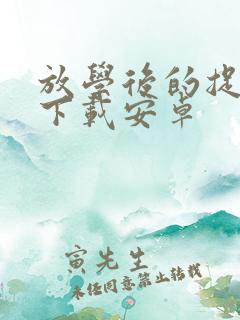 放學後的捉
下載安卓
寅先生
未经同意禁止转载